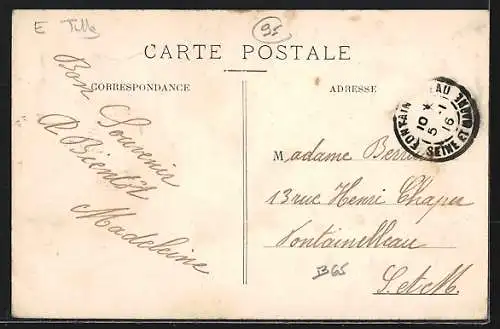 E Tille
95
CARTE POSTALE
CORRESPONDANCE
ADRESSE
Bon
Souvenir
A Bientot
Madeleine
FONTAINEBLEAU
10 *
5 - 1
16
SEINE ET MARNE
Madame
13 rue Henri Chaper
Fontainelleau
S. et M.
B65